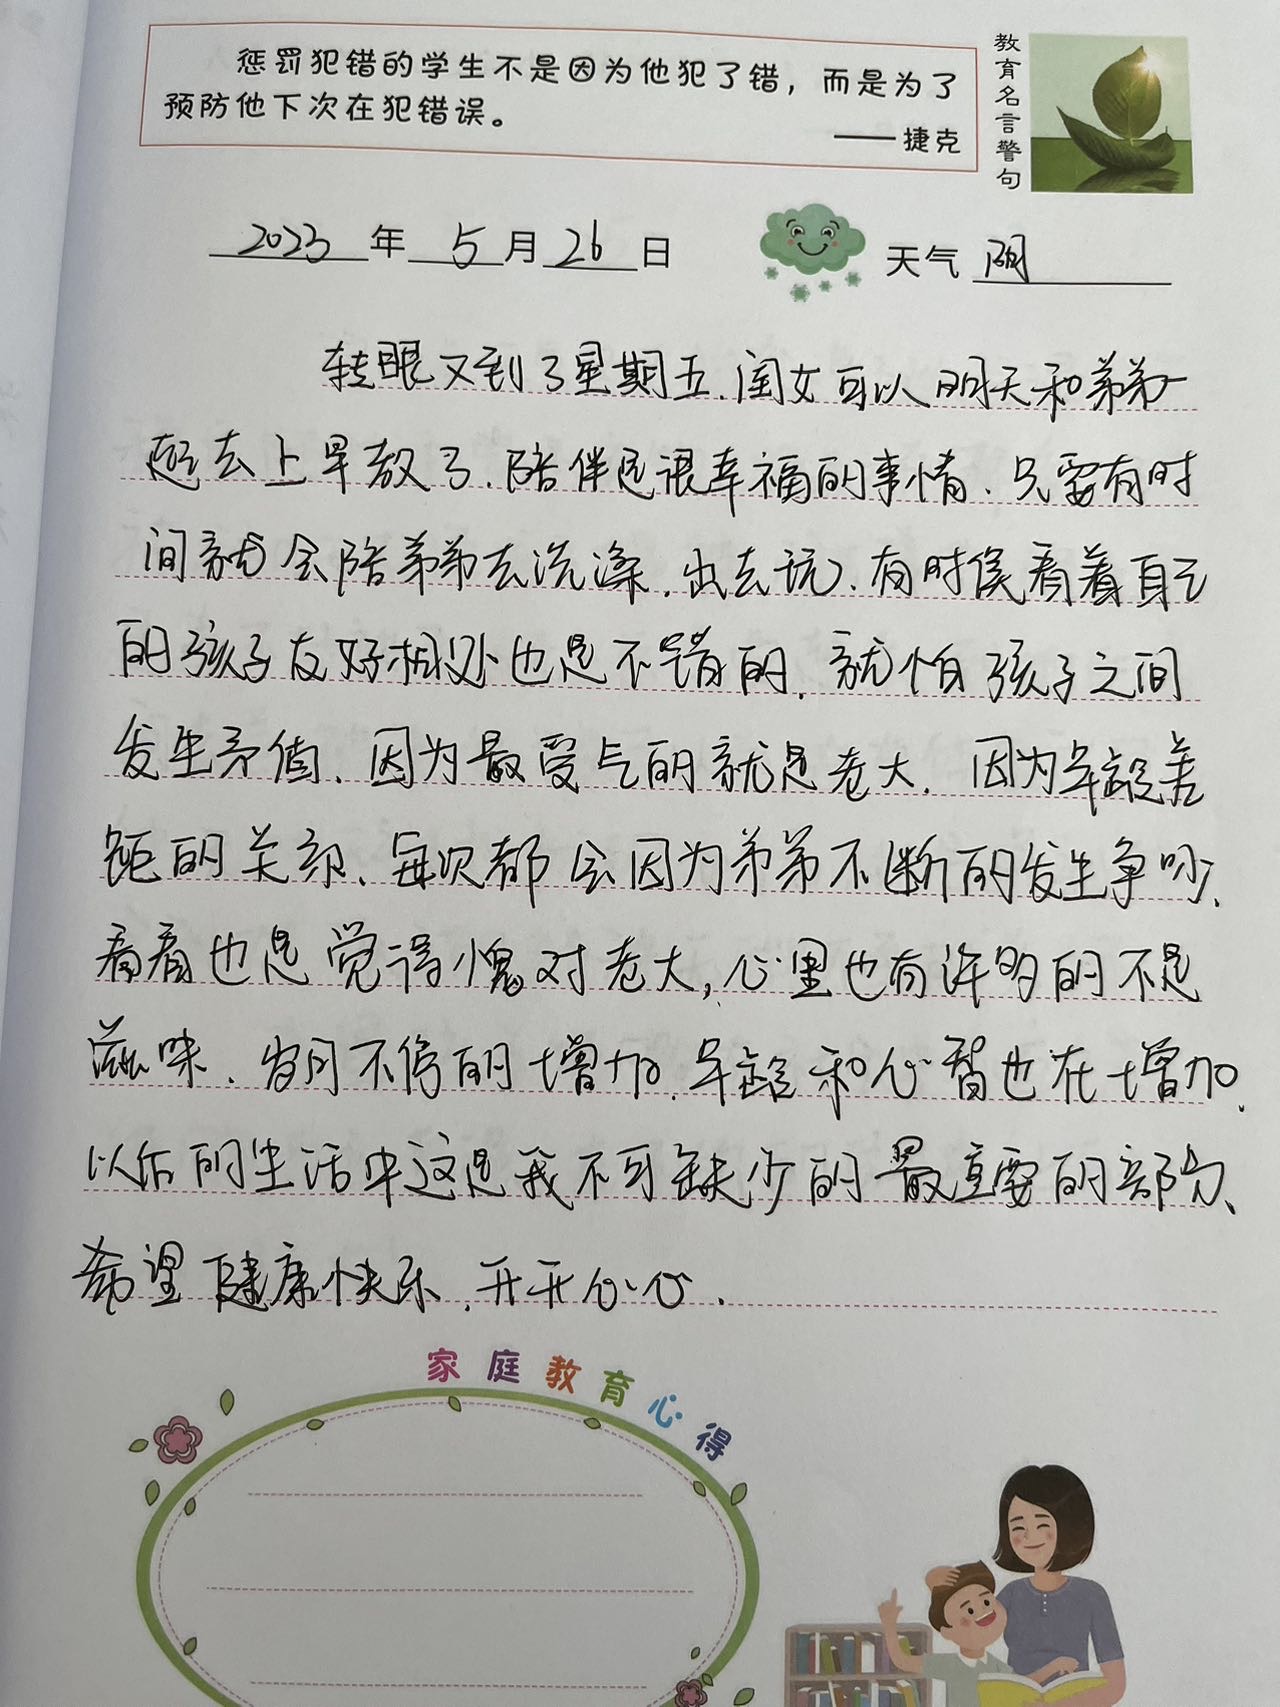 惩罚犯错的学生不是因为他犯了错，而是为了
预防他下次在犯错误。
——捷克
教育名言警句
2023年5月26日
天气 阴
转眼又到了星期五.闺女可以明天和弟弟一
起去上早教了.陪伴是很幸福的事情.只要有时
间就会陪弟弟去洗澡.出去玩.有时侯看着自己
的孩子友好相处也是不错的.就怕孩子之间
发生矛盾.因为最受气的就是老大.因为年龄差
距的关系.每次都会因为弟弟不断的发生争吵.
看着也是觉得愧对老大,心里也有许多的不是
滋味.岁月不停的增加.年龄和心智也在增加.
以后的生活中这是我不可缺少的最重要的部分.
希望健康快乐.开开心心.
家庭教育心得